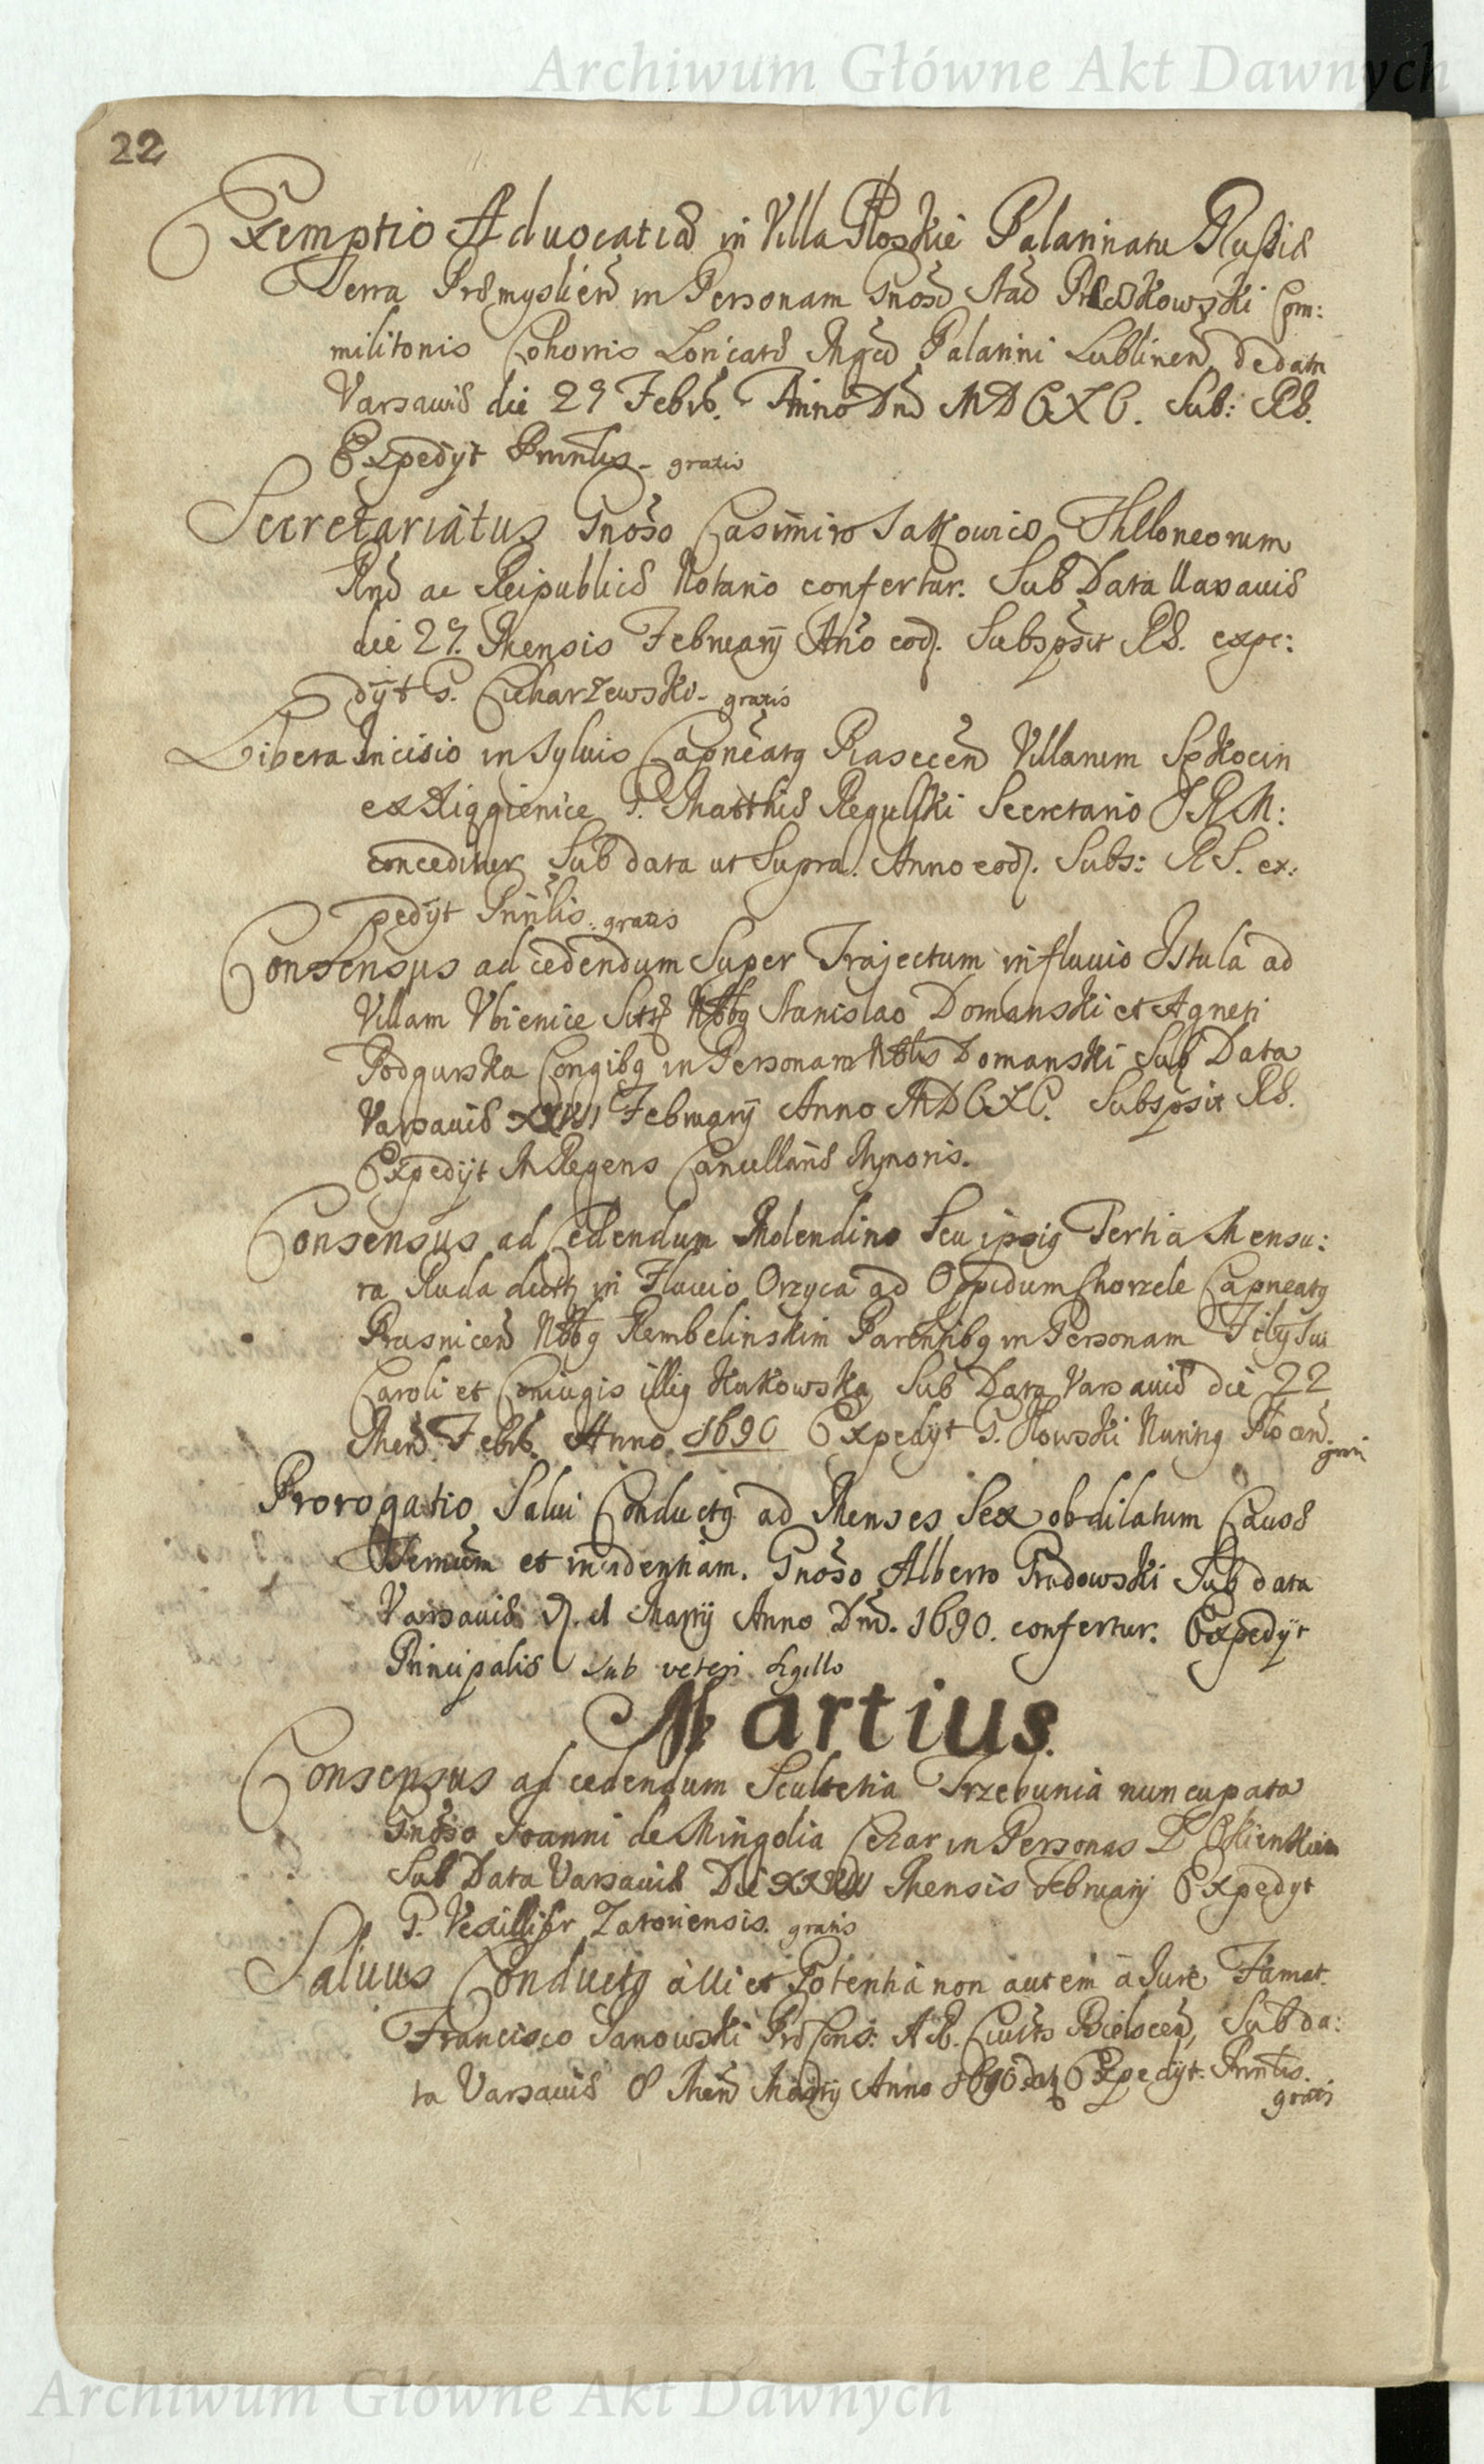 Archiwum Główne Akt Dawnych
22
Exemptio Advocatiæ in Villa Płoskie Palatinatu Russiæ
Terra Præmyslien in Personam Gnosi Com:
militonis Cohortis Loricatæ Mgci Palatini Lublinen de data
Varsaviæ die 27 Febr. Anno Dni MDCXC. Sub: RS.
Expedyt Prinlis - gratis
Secretariatus Gnoso Casimiro Jatkowicz Theloneorum
Rni ac Reipublicæ Notario confertur. Sub Data Uarsaviæ
die 27. Mensis Februarij Ano eod. Subspsit RS. expe:
dijt G. Ciecharzewski - gratis
Libera Incisio in Sylvis Capneatq Piasecen Villarum
P. Matthiæ Regulski Secretario SRM:
conceditur Sub data ut Supra. Anno eod. Subs: RS. ex:
pedijt Prinlis. gratis
Consensus ad cedendum Super Trajectum in fluvio Istula ad
Villam Vbienice Sitt Nbbq Stanislao Domanski et Agneti
Podgurska Congibq in Personam Nblis Domanski Sub Data
Varsaviæ Februarij Anno MDCXC. Subspsit RS.
Expedijt M Regens Cancellariæ Mynoris.
Consensus ad Cedendum Molendino Seu ipsiq Tertia Mensu:
ra Ruda dictt in Fluvio Orzyca ad Oppidum Chorzele Capneatq
Prasnicen Nbbq Rembelinskim Parentibq in Personam Filij Sui
Caroli et Coniugis illiq Kukowska Sub Data Varsaviæ die 22
Mens Febr. Anno 1690 Expedyt G. Nuring
Prorogatio Salvi Conductq ad Menses Sex ob dilatum Causæ
et incidentiam. Gnoso Alberto Prudowski Sub data
Varsaviæ Martij Anno Dni. 1690. confertur. Expedyt
Principalis sub veteri sigillo
Martius.
Consensus ad cedendum Scultetia Trzebunia nuncupata
Gnoso Joanni de Mingolia Cezar in Personas
Sub Data Varsaviæ Die Mensis Februarij Expedyt
P. Vexillifer Zatoriensis. gratis
Salvus Conductq a Vi et Potentia non autem a Jure Famat.
Francisco Janowski Civitts Bielscen, Sub da:
ta Varsaviæ 8 Mens Martij Anno 1690 Expedyt. Prinlis.
gratis
Archiwum Główne Akt Dawnych